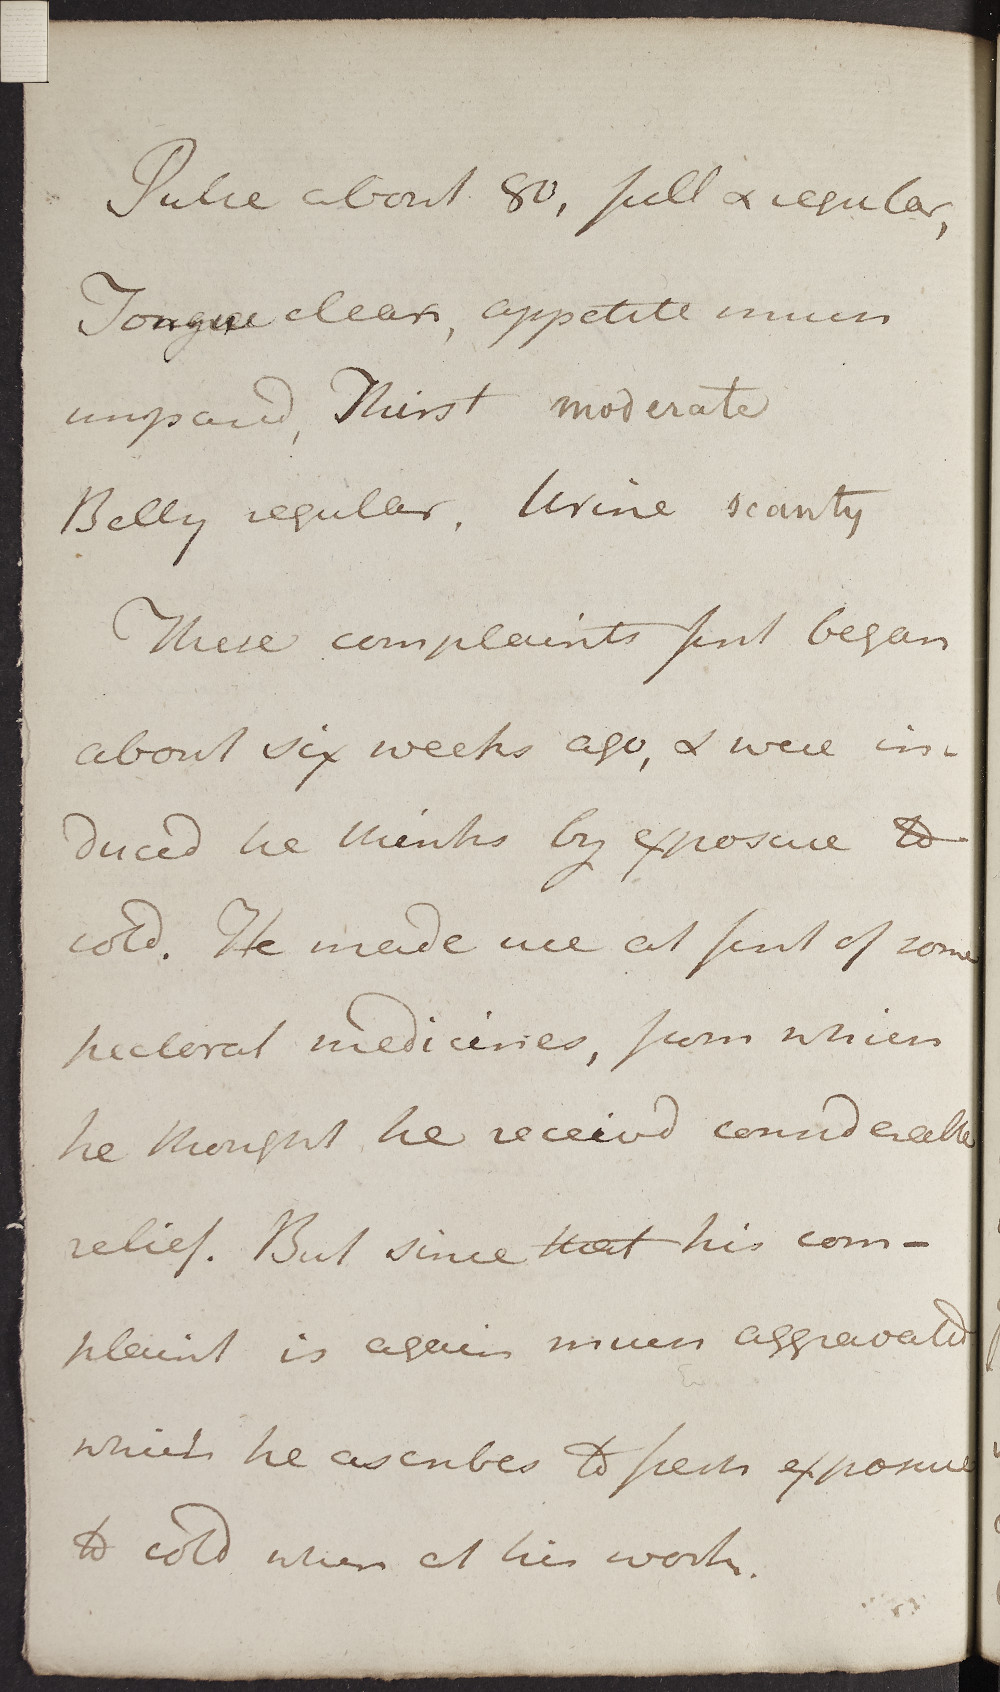 Pulse about 80, full & regular,
Tongue clean, appetite much
impaired, Thirst moderate
Belly regular, Urine scanty
These complaints first began
about six weeks ago, & were in-
duced he thinks by exposure to
cold. He made use at first of some
pectoral medicines, from which
he thought he receivd considerable
relief. But since that his com-
plaint is again much aggravated
which he ascribes to fresh exposure
to cold when at his work.